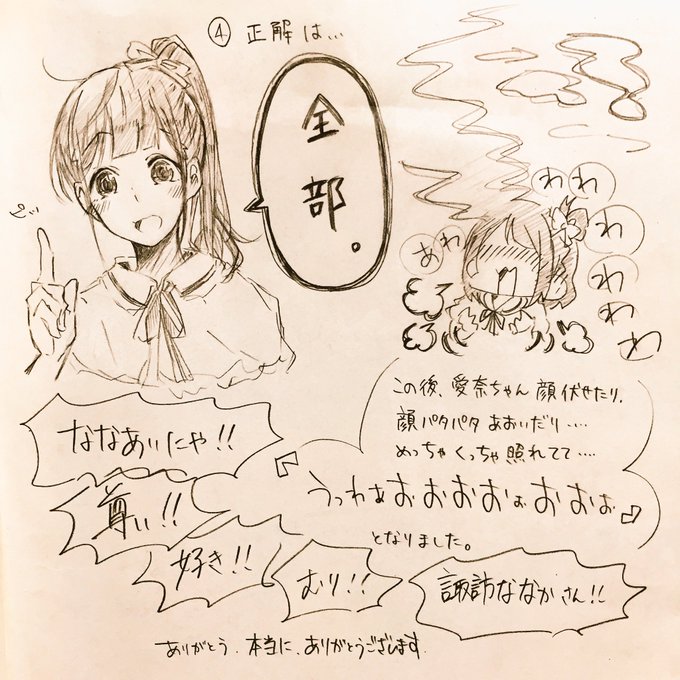 ④ 正解は…
全部。
ピッ
わわ
わ
わ
わ
わ
あわ
この後、愛奈ちゃん 顔伏せたり、
顔パタパタ あおいだり……
めっちゃくっちゃ照れてて……
『うっわぁおおおおぉおおぉ』
となりました。
ななあいにゃ!!
尊い!!
好き!!
むり!!
諏訪ななかさん!!
ありがとう、本当に、ありがとうございます.